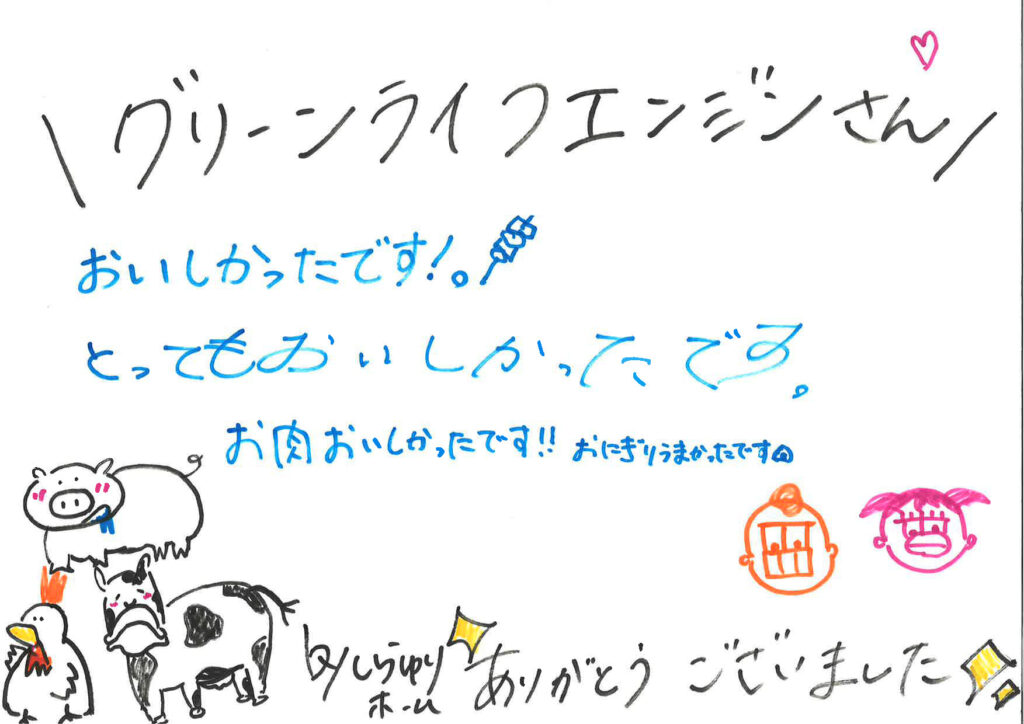 \グリーンライフエンジンさん/
おいしかったです!。
とってもおいしかったです。
お肉おいしかったです!! おにぎりうまかったです
by しらゆりホーム
ありがとうございました